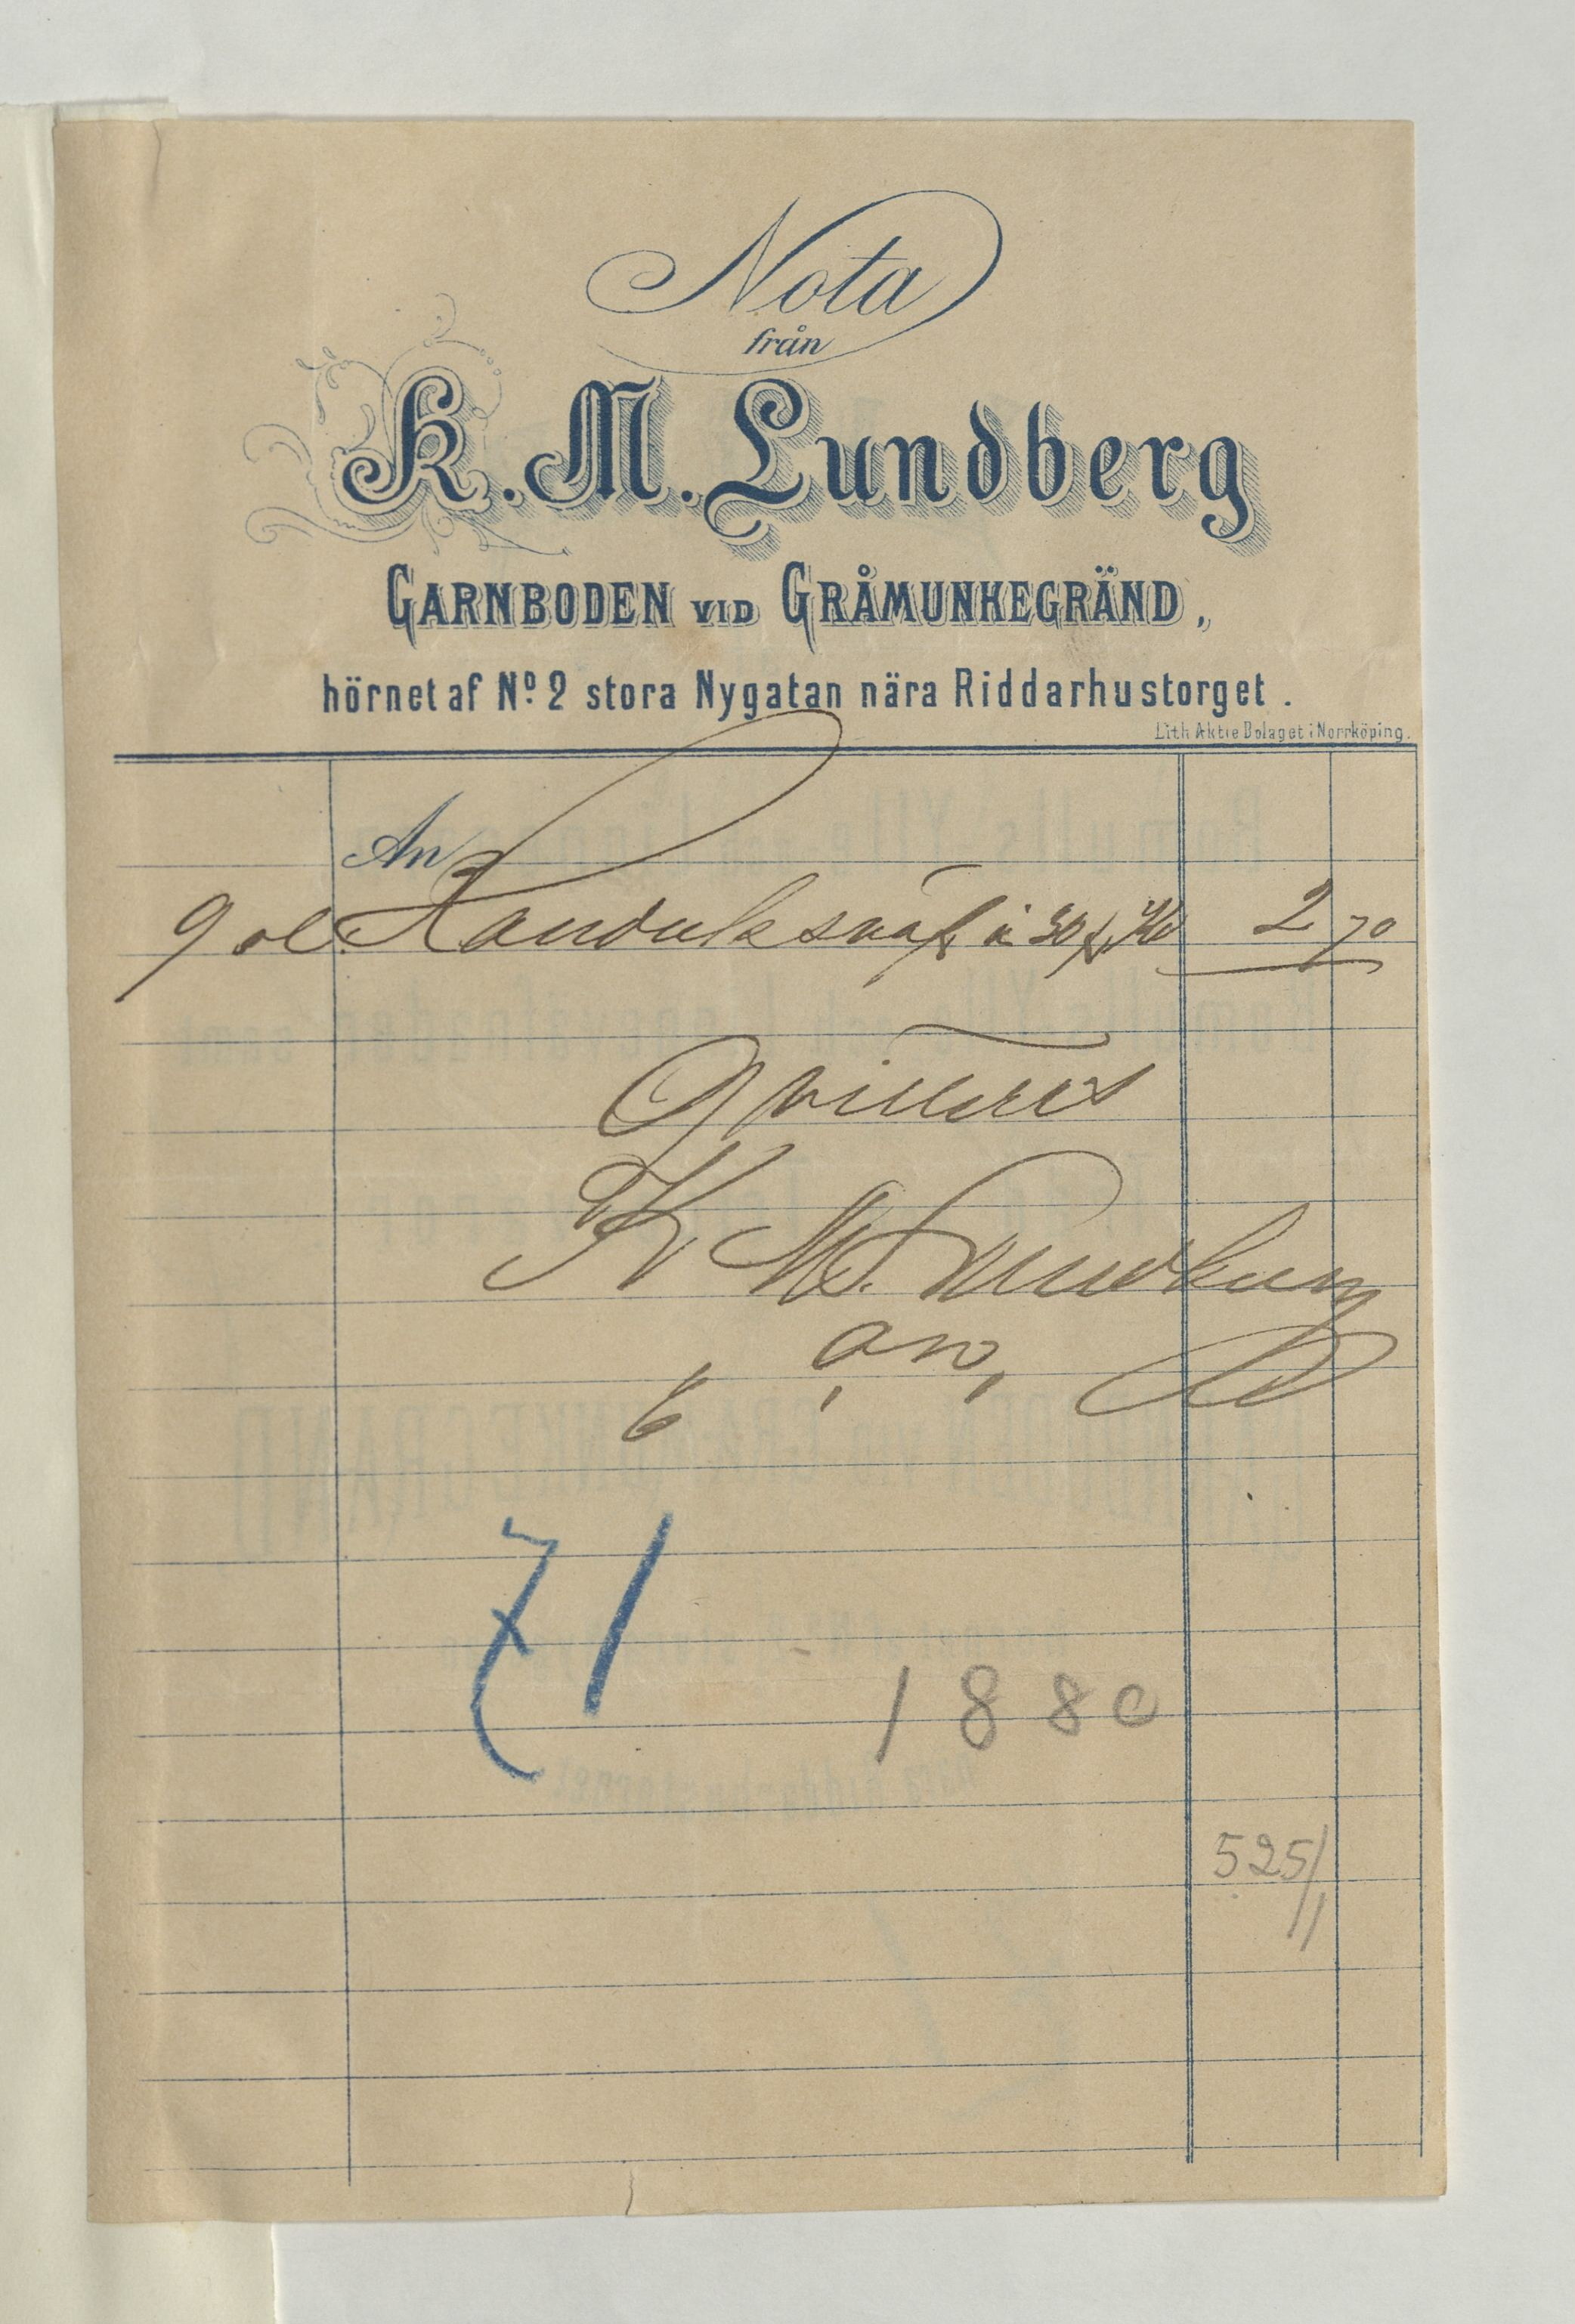 Nota
från
K. M. Lundberg
GARNBODEN VID GRÅMUNKEGRÄND,
hörnet af No. 2 stora Nygatan nära Riddarhustorget.
Lith Aktie Bolaget i Norrköping.
An
9 al. à 30 2 70
Qvitteras
K M. Lundberg
71
1880
525//